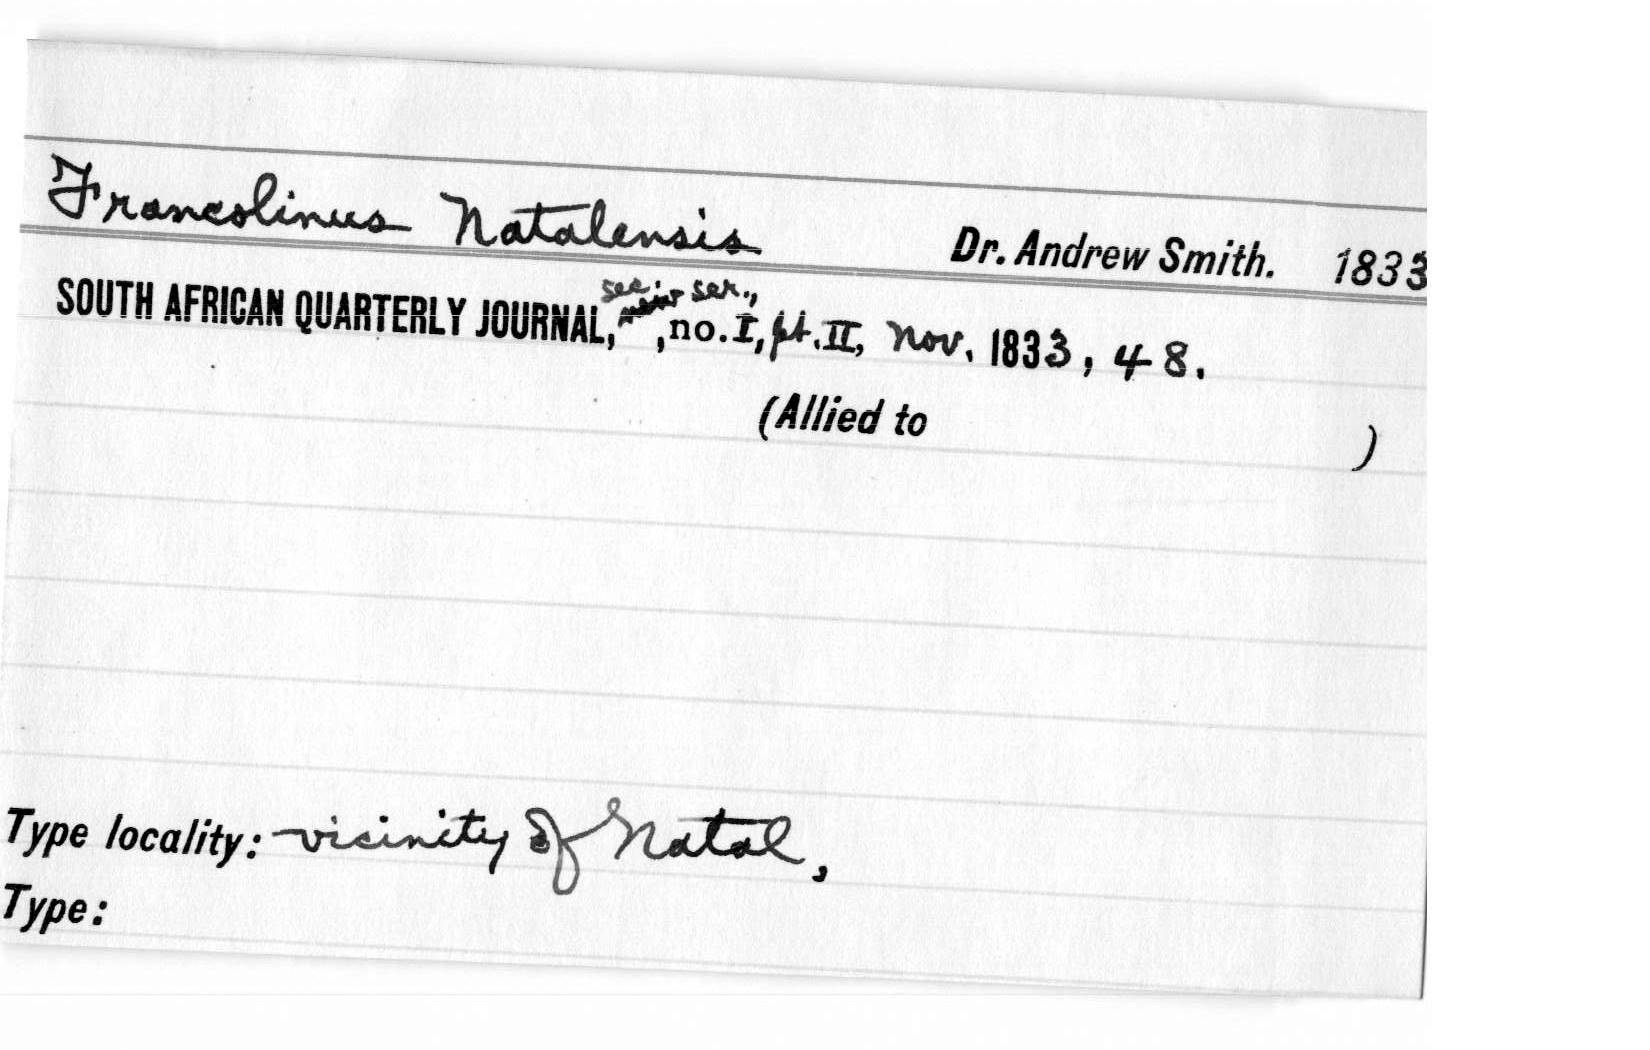 Francolinus Natalensis Dr. Andrew Smith. 1833
SOUTH AFRICAN QUARTERLY JOURNAL, sec. ser., , no. I, pt. II, Nov. 1833, 48.
(Allied to )
Type locality: vicinity of Natal,
Type: